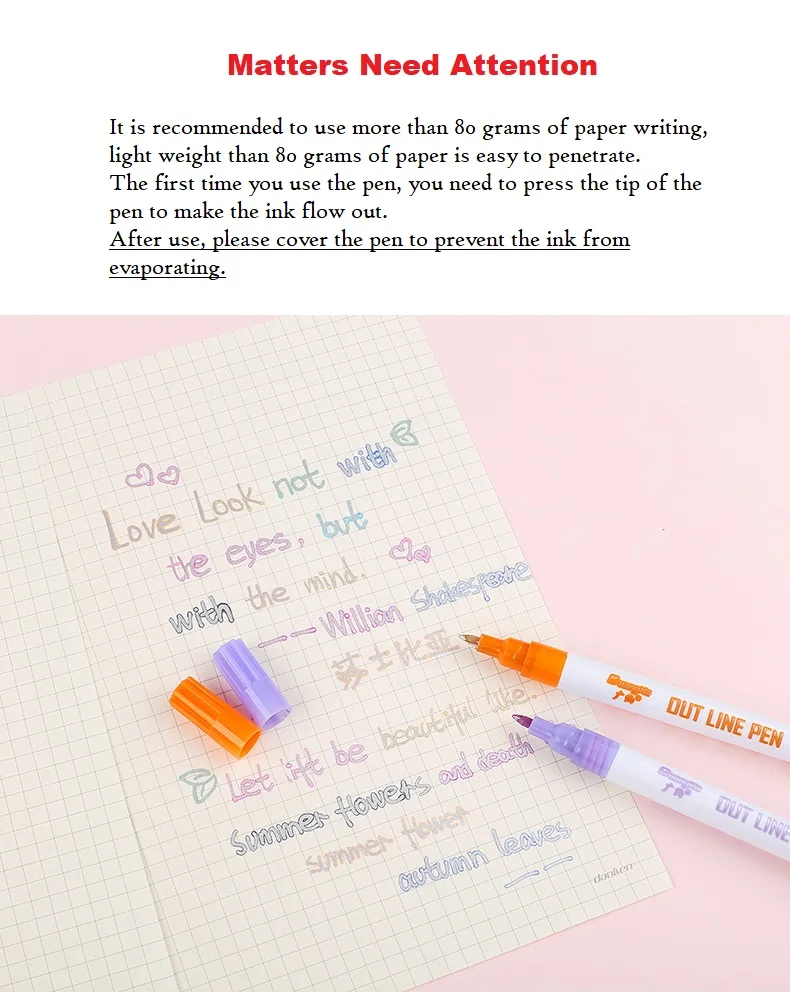 Matters Need Attention
It is recommended to use more than 80 grams of paper writing,
light weight than 80 grams of paper is easy to penetrate.
The first time you use the pen, you need to press the tip of the
pen to make the ink flow out.
After use, please cover the pen to prevent the ink from
evaporating.
Love Look not with
the eyes, but
with the mind.
——Willian Shakespeare
莎士比亚
Let ift be beautiful like.
summer flowers and death
summer flower
autumn leaves
OUT LINE PEN
OUT LINE